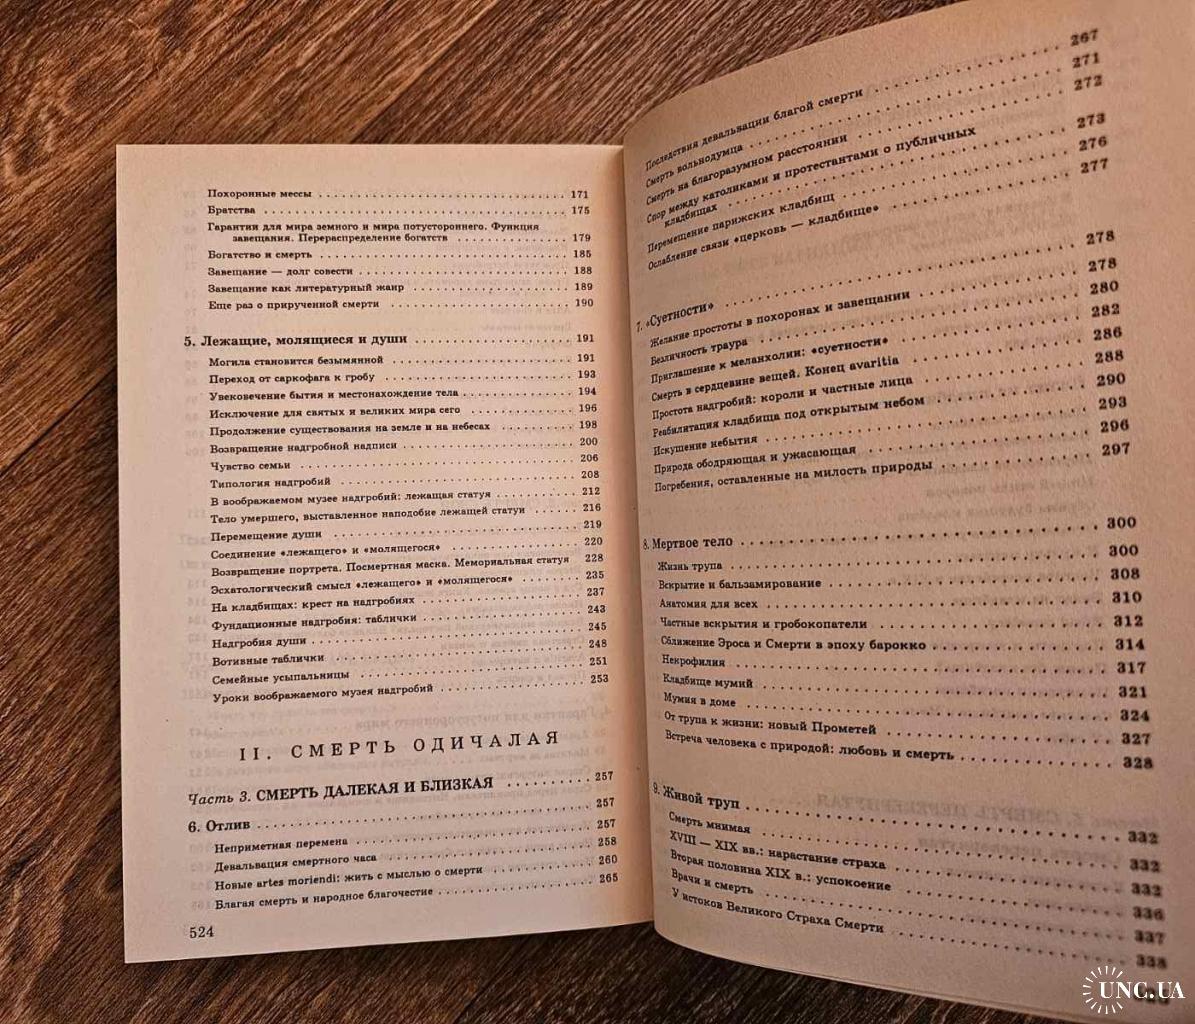 Похоронные мессы . . . . . . . . . . 171
Братства . . . . . . . . . . 175
Гарантии для мира земного и мира потустороннего. Функция
завещания. Перераспределение богатств . . . . . . . . . . 179
Богатство и смерть . . . . . . . . . . 185
Завещание — долг совести . . . . . . . . . . 188
Завещание как литературный жанр . . . . . . . . . . 189
Еще раз о прирученной смерти . . . . . . . . . . 190
5. Лежащие, молящиеся и души . . . . . . . . . . 191
Могила становится безымянной . . . . . . . . . . 191
Переход от саркофага к гробу . . . . . . . . . . 193
Увековечение бытия и местонахождение тела . . . . . . . . . . 194
Исключение для святых и великих мира сего . . . . . . . . . . 196
Продолжение существования на земле и на небесах . . . . . . . . . . 198
Возвращение надгробной надписи . . . . . . . . . . 200
Чувство семьи . . . . . . . . . . 206
Типология надгробий . . . . . . . . . . 208
В воображаемом музее надгробий: лежащая статуя . . . . . . . . . . 212
Тело умершего, выставленное наподобие лежащей статуи . . . . . . 216
Перемещение души . . . . . . . . . . 219
Соединение «лежащего» и «молящегося» . . . . . . . . . . 220
Возвращение портрета. Посмертная маска. Мемориальная статуя 228
Эсхатологический смысл «лежащего» и «молящегося» . . . . . . . . 235
На кладбищах: крест на надгробиях . . . . . . . . . . 237
Фундационные надгробия: таблички . . . . . . . . . . 243
Надгробия души . . . . . . . . . . 245
Вотивные таблички . . . . . . . . . . 248
Семейные усыпальницы . . . . . . . . . . 251
Уроки воображаемого музея надгробий . . . . . . . . . . 253
II. СМЕРТЬ ОДИЧАЛАЯ
Часть 3. СМЕРТЬ ДАЛЕКАЯ И БЛИЗКАЯ . . . . . . . . . . 257
6. Отлив . . . . . . . . . . 257
Неприметная перемена . . . . . . . . . . 257
Девальвация смертного часа . . . . . . . . . . 258
Новые artes moriendi: жить с мыслью о смерти . . . . . . . . . . 260
Благая смерть и народное благочестие . . . . . . . . . . 265
524
Последствия девальвации благой смерти . . . . . . . . . . 267
Смерть вольнодумца . . . . . . . . . . 271
Смерть на благоразумном расстоянии . . . . . . . . . . 272
Спор между католиками и протестантами о публичных
кладбищах . . . . . . . . . . 273
Перемещение парижских кладбищ . . . . . . . . . . 276
Ослабление связи «церковь — кладбище» . . . . . . . . . . 277
7. «Суетности» . . . . . . . . . . 278
Желание простоты в похоронах и завещании . . . . . . . . . . 278
Безличность траура . . . . . . . . . . 280
Приглашение к меланхолии: «суетности» . . . . . . . . . . 282
Смерть в сердцевине вещей. Конец avaritia . . . . . . . . . . 286
Простота надгробий: короли и частные лица . . . . . . . . . . 288
Реабилитация кладбища под открытым небом . . . . . . . . . . 290
Искушение небытия . . . . . . . . . . 293
Природа ободряющая и ужасающая . . . . . . . . . . 296
Погребения, оставленные на милость природы . . . . . . . . . . 297
8. Мертвое тело . . . . . . . . . . 300
Жизнь трупа . . . . . . . . . . 300
Вскрытие и бальзамирование . . . . . . . . . . 308
Анатомия для всех . . . . . . . . . . 310
Частные вскрытия и гробокопатели . . . . . . . . . . 312
Сближение Эроса и Смерти в эпоху барокко . . . . . . . . . . 314
Некрофилия . . . . . . . . . . 317
Кладбище мумий . . . . . . . . . . 321
Мумия в доме . . . . . . . . . . 324
От трупа к жизни: новый Прометей . . . . . . . . . . 327
Встреча человека с природой: любовь и смерть . . . . . . . . . . 328
9. Живой труп . . . . . . . . . . 332
Смерть мнимая . . . . . . . . . . 332
XVIII — XIX вв.: нарастание страха . . . . . . . . . . 332
Вторая половина XIX в.: успокоение . . . . . . . . . . 336
Врачи и смерть . . . . . . . . . . 337
У истоков Великого Страха Смерти . . . . . . . . . . 338
UNC.UA